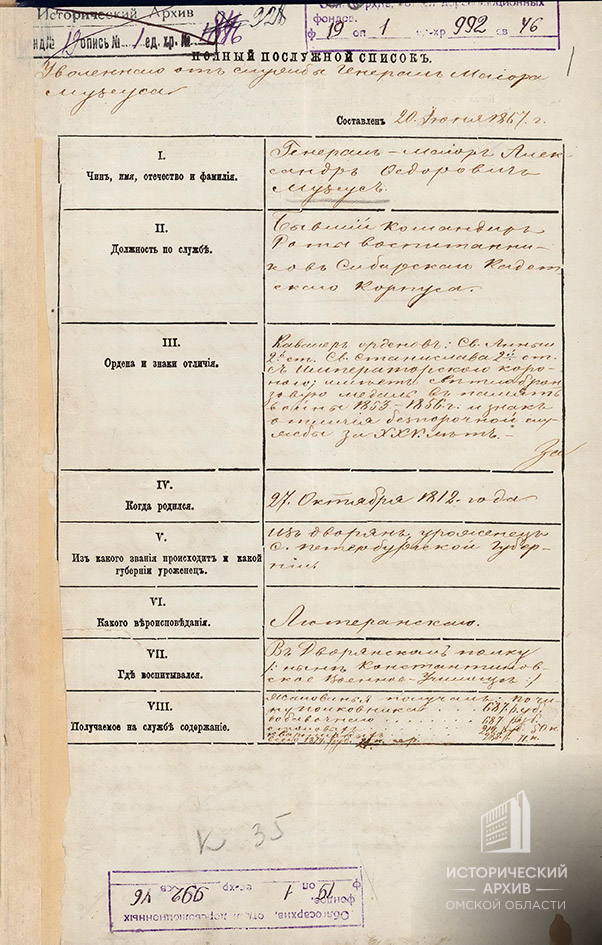 Исторический Архив
928
ф 19 оп 1 ед-хр 992 св 46
19 опись № 1 ед. хр. №
ПОЛНЫЙ ПОСЛУЖНОЙ СПИСОКЪ.
Уволеннаго отъ службы Генералъ Маіора
Музеуса
1
Составленъ 20 Іюня 1867 г.
I.
Чинъ, имя, отечество и фамилія.
Генералъ-маіоръ Алек-
сандръ Ѳедоровичъ
Музеусъ
II.
Должность по службѣ.
Бывшій Командиръ
Роты воспитанни-
ковъ Сибирскаго Кадет-
скаго Корпуса.
III.
Ордена и знаки отличія.
Кавалеръ орденовъ: Св. Анны
2й ст. Св. Станислава 2й ст.
съ Императорскою коро-
ною; имѣетъ свѣтлоброн-
зовую медаль въ память
войны 1853-1856 г. и знакъ
отличія безпорочной слу-
жбы за XXV лѣтъ.
За
IV.
Когда родился.
27. Октября 1812. года
V.
Изъ какого званія происходитъ и какой
губерніи уроженецъ.
Изъ дворянъ, уроженецъ
С. Петербургской губер-
ніи.
VI.
Какого вѣроисповѣданія.
Лютеранскаго.
VII.
Гдѣ воспитывался.
Въ Дворянскомъ полку
/: нынѣ Константинов-
ское Военное Училище :/
VIII.
Получаемое на службѣ содержаніе.
Жалованья получалъ: по чи-
ну полковника 687 руб.
добавочнаго 687 руб.
К 35
Облгосархив, отд. дореволюционных
фондов.
ф 19 оп 1 ед-хр 992 св 46
ИСТОРИЧЕСКИЙ
АРХИВ
ОМСКОЙ ОБЛАСТИ